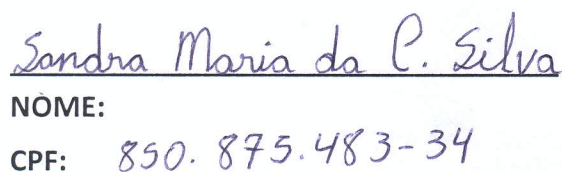 Sandra Maria da C. Silva
NOME:
CPF: 850.875.483-34